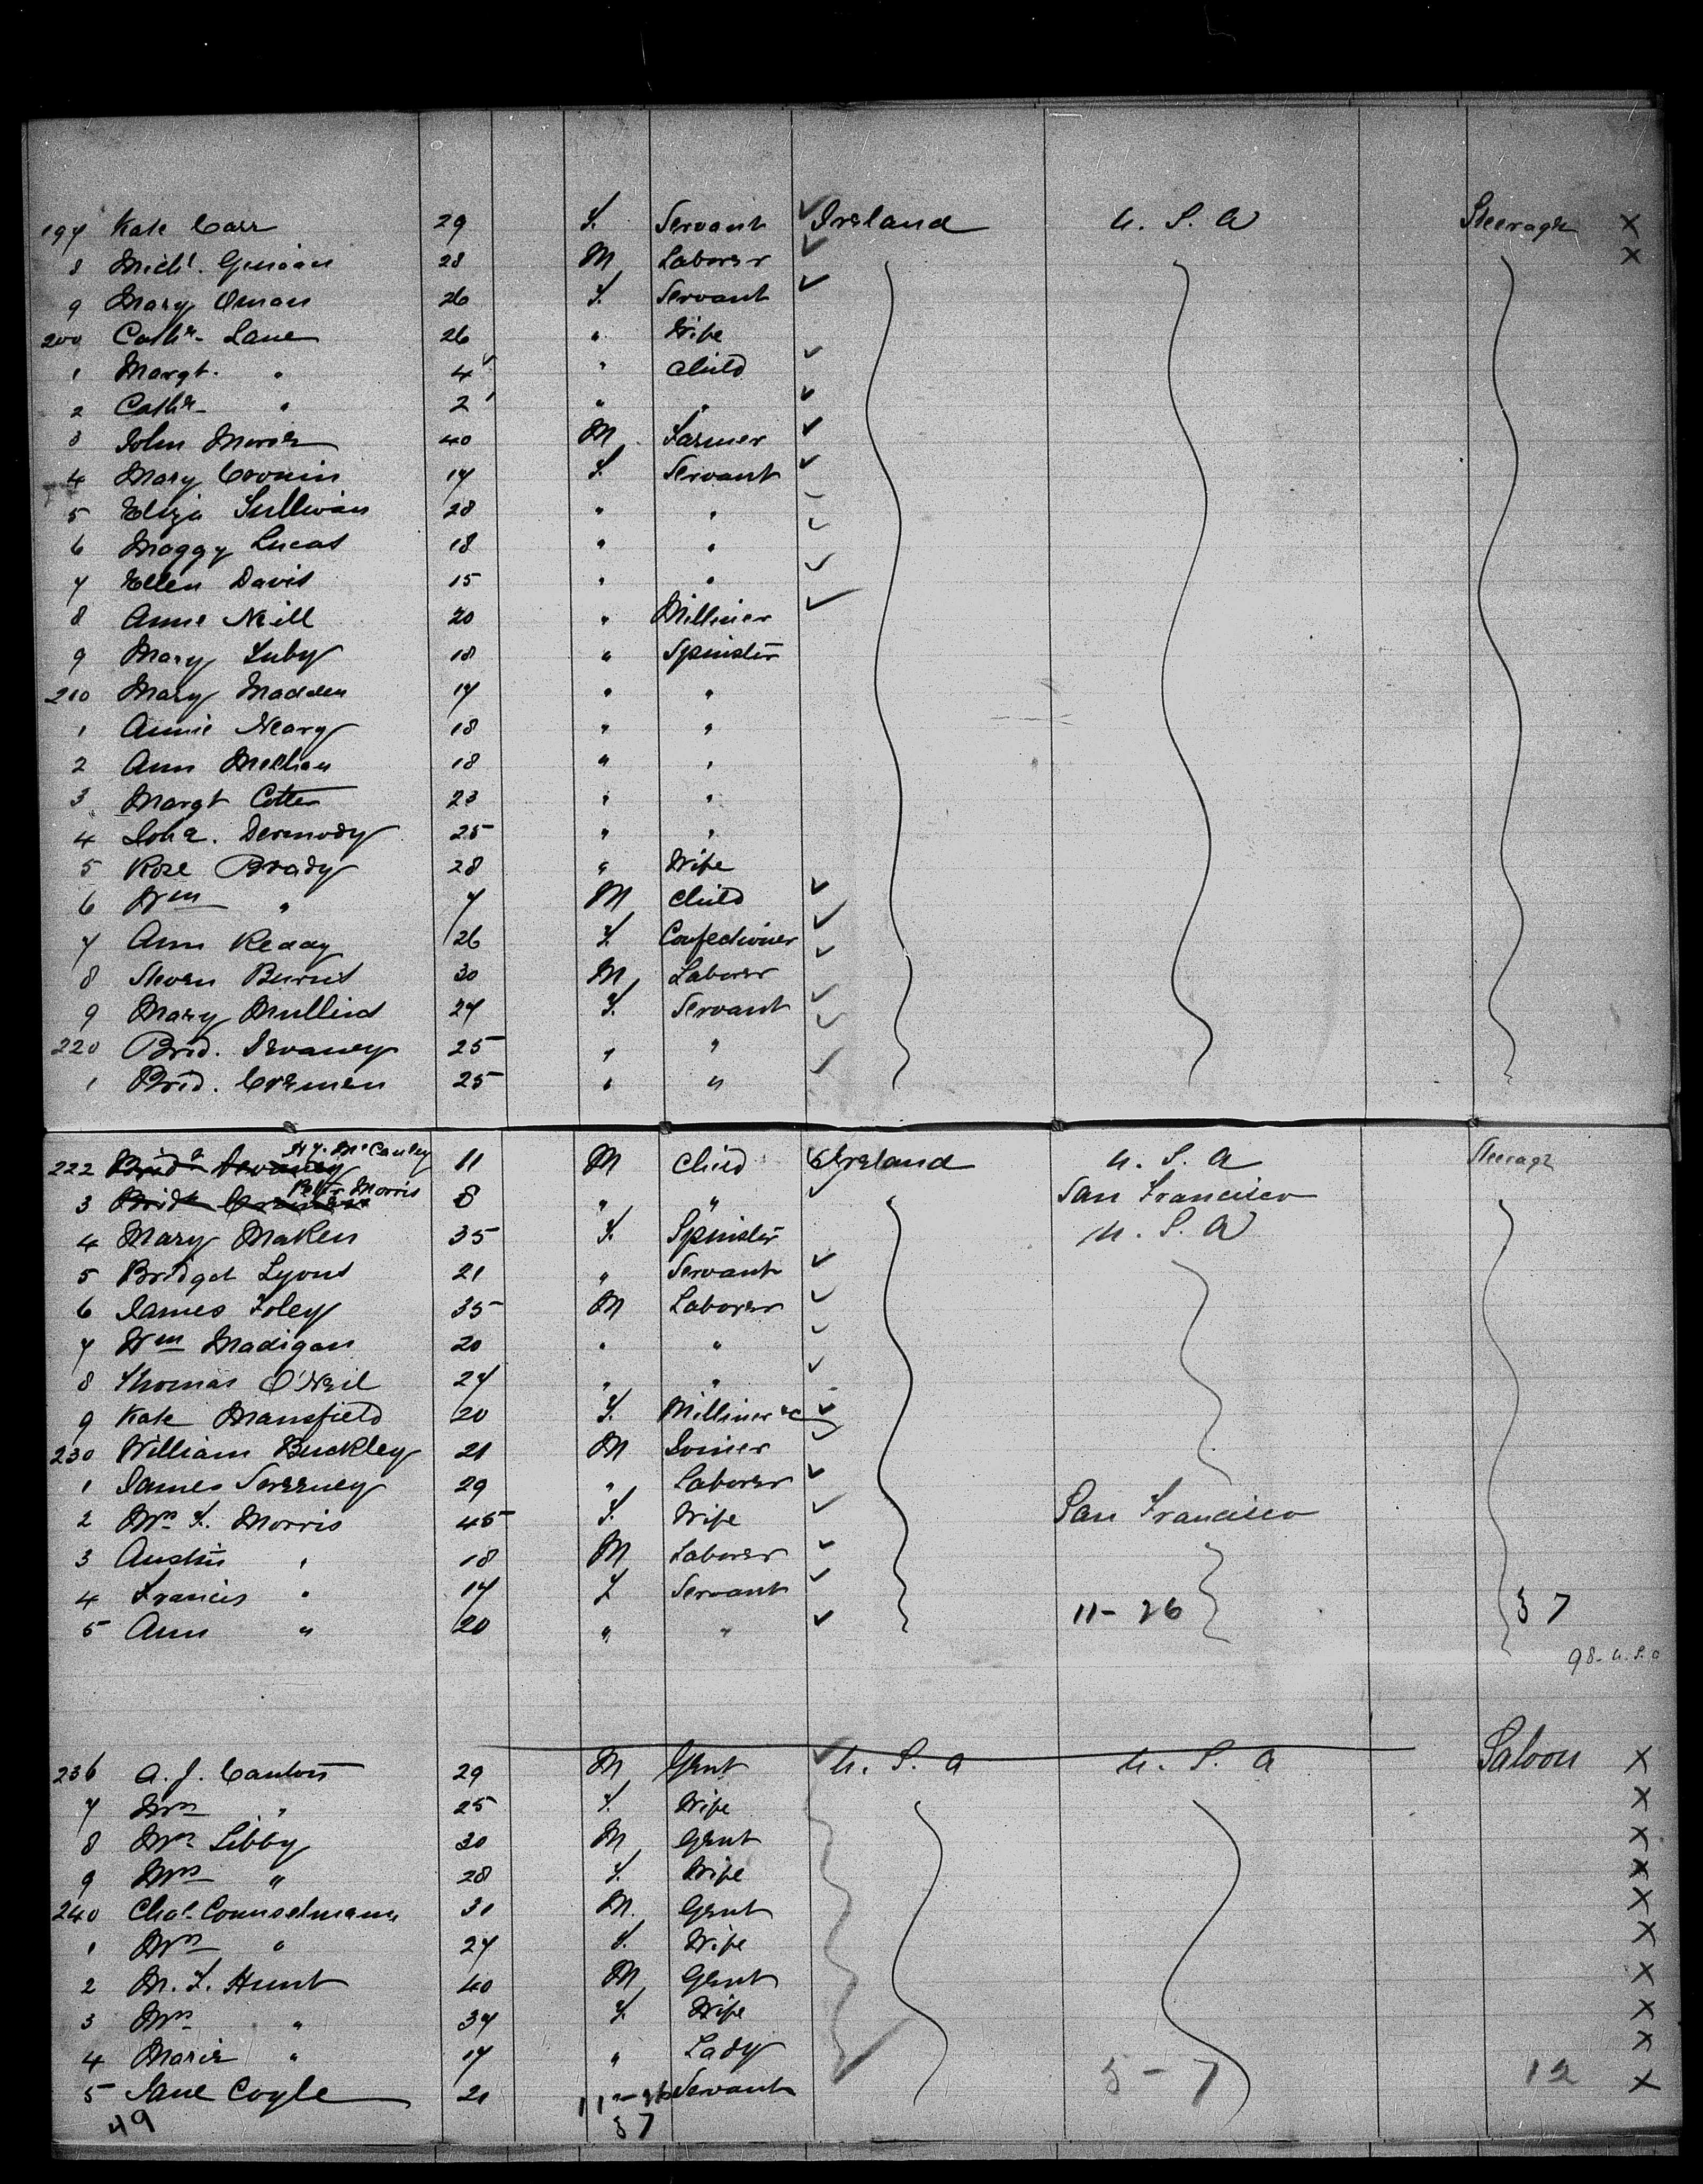 197 Kate Carr 29 F. Servant ✓ Ireland U. S. A Steerage X
8 Michl. 28 M Laborer ✓ X
9 Mary 26 F. Servant ✓
200 Cathe. Lane 26 " Wife
1 Margt. " 4 " Child ✓
2 Cathe " 2 " " ✓
3 John 40 M Farmer ✓
4 Mary Cronin 17 F. Servant ✓
5 Eliza Sullivan 28 " "
6 Maggy Lucas 18 " " ✓
7 Ellen Davis 15 " " ✓
8 Anne Neill 20 " Milliner ✓
9 Mary Luby 18 " Spinster
210 Mary Madden 17 " "
1 Annie Neary 18 " "
2 Ann Meehan 18 " "
3 Margt Cotter 23 " "
4 Joha. Dermody 25 " "
5 Rose Brady 28 " Wife
6 Wm " 7 M Child ✓
7 Ann Reday 26 F Confectioner ✓
8 Steven Burns 30 M Laborer ✓
9 Mary Mullins 27 F. Servant ✓
220 Brid. Devaney 25 " " ✓
1 Brid. Cremen 25 " " ✓
222 Hy. McCauley 11 M Child ✓ Ireland U. S. A Steerage
3 Peter Morris 8 " " ✓ San Francisco
4 Mary Maken 35 F. Spinster U. S. A
5 Bridget Lyons 21 " Servant ✓
6 James Foley 35 M Laborer ✓
7 Wm Madigan 20 " " ✓
8 Thomas O'Neil 27 " " ✓
9 Kate Mansfield 20 F. Milliner &c ✓
230 William Buckley 21 M Joiner ✓
1 James Sweeney 29 " Laborer ✓
2 Mrs F. Morris 45 F. Wife ✓ San Francisco
3 Austin " 18 M Laborer ✓
4 Francis " 17 F Servant ✓
5 Ann " 20 " " ✓ 11-26 37
98. U. S. a
236 A. J. Canton 29 M Gent ✓ U. S. A U. S. A Saloon X
7 Mrs " 25 F. Wife X
8 Mr. Libby 30 M Gent X
9 Mrs " 28 F. Wife X
240 Chas Counselmann 31 M. Gent X
1 Mrs " 27 F. Wife X
2 M. F. Hunt 40 M Gent X
3 Mrs " 37 F. Wife X
4 Marie " 17 " Lady X
5 Jane Coyle 21 11-26 Servant 5-7 12 X
49 37